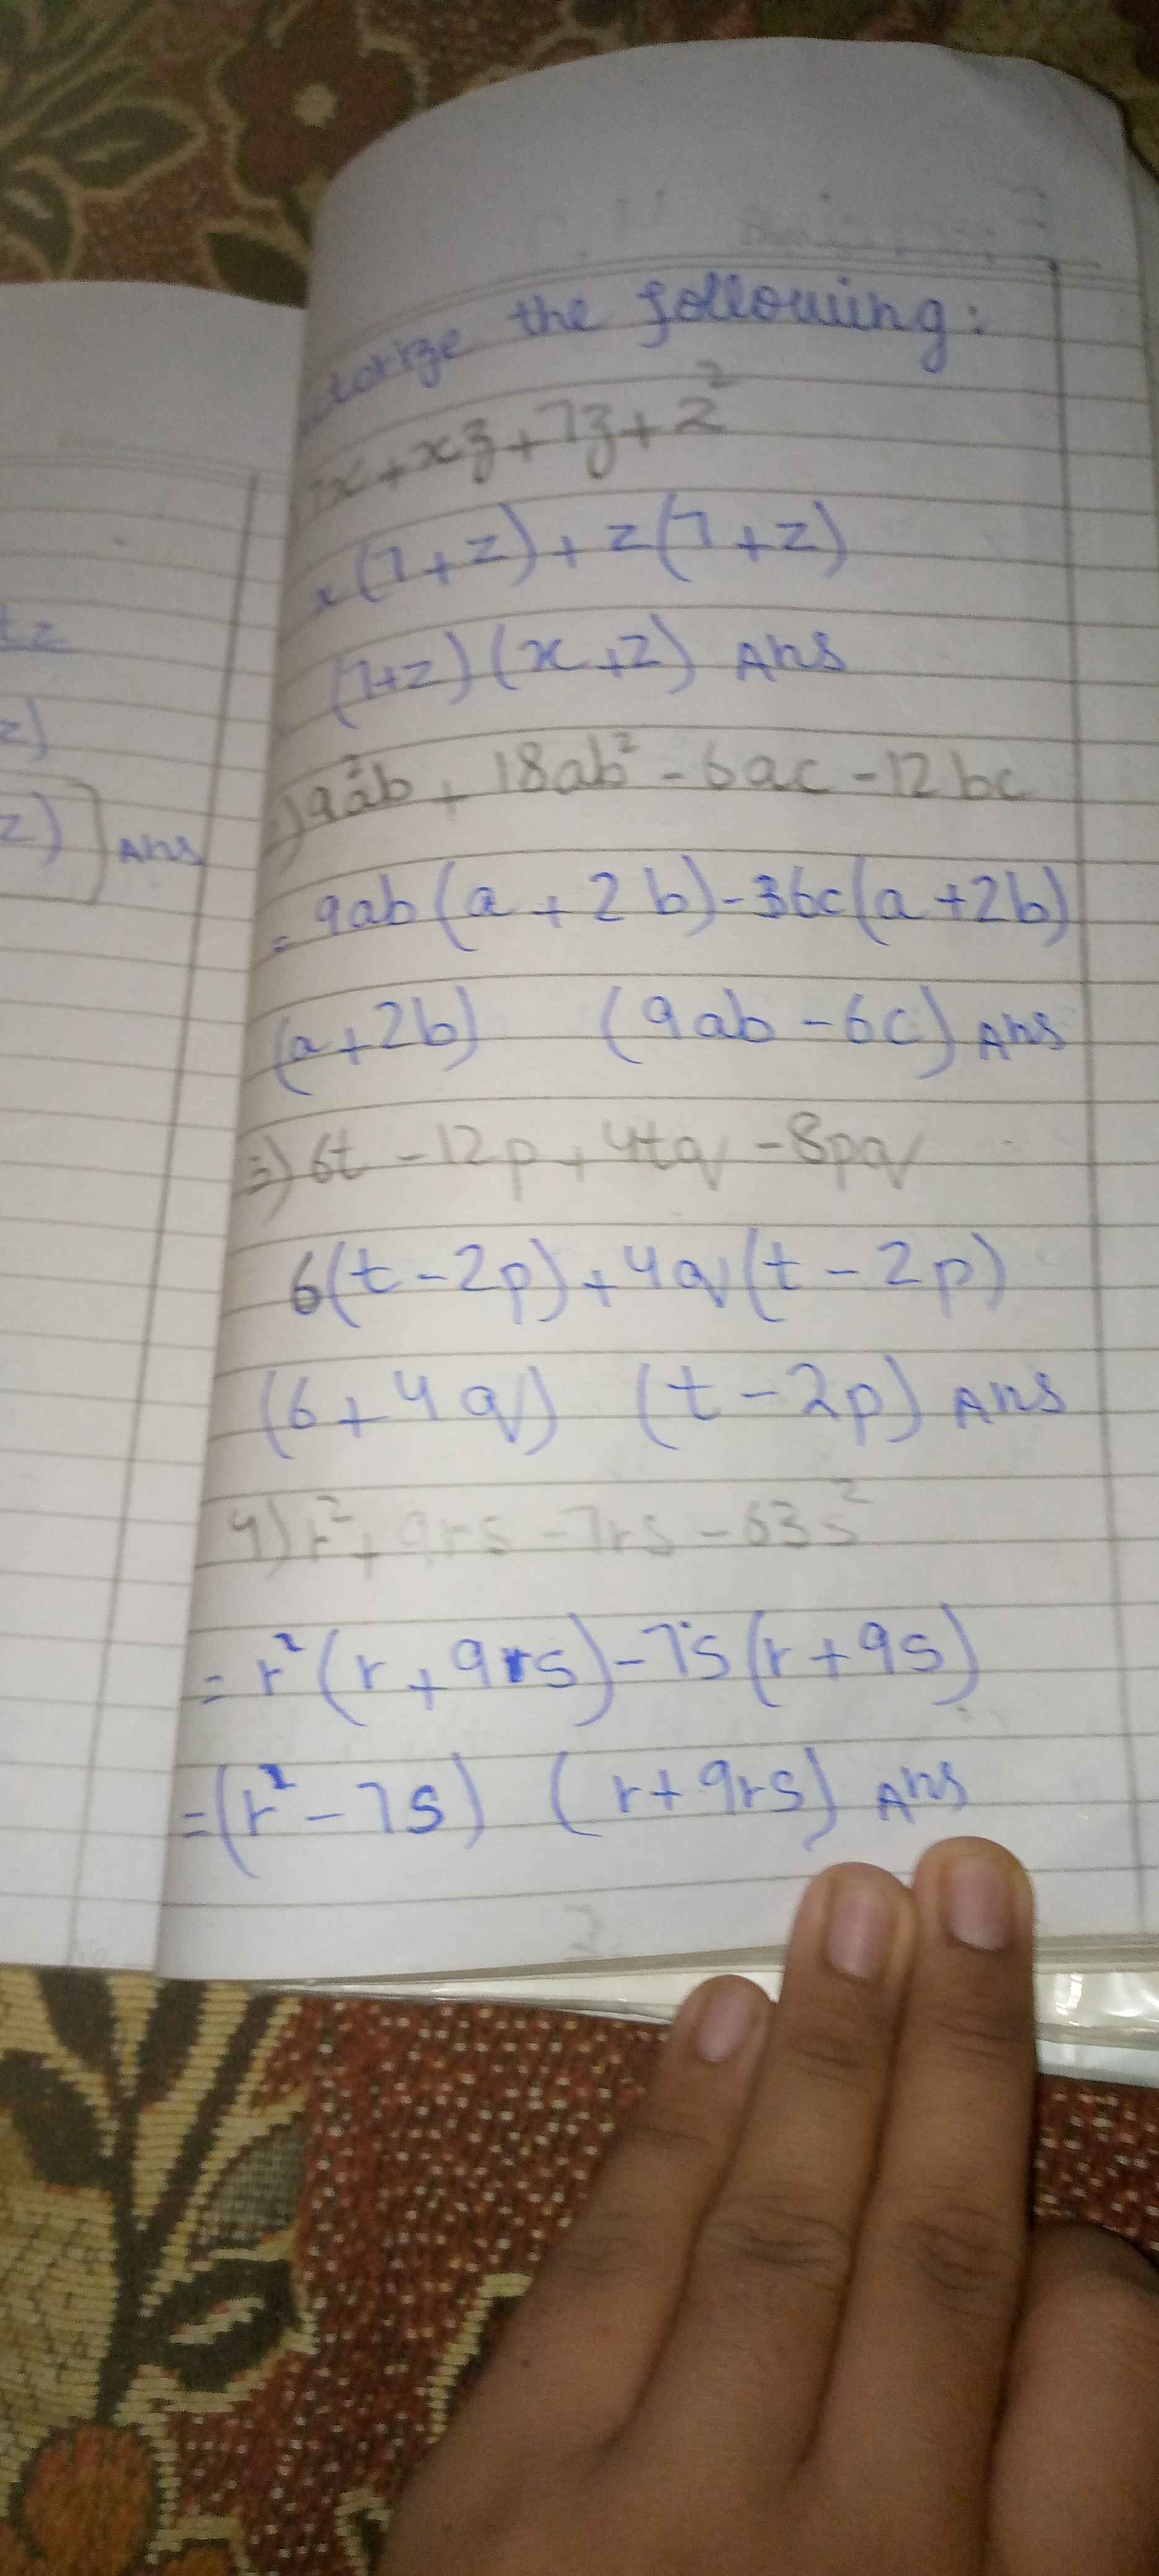 tz
z)
z)] Ans
the following:
7x + xz + 7z + z²
x(7+z) + z(7+z)
(7+z)(x+z) Ans
)9a²b + 18ab² - 6ac - 12bc
= 9ab(a + 2b) - 36c(a + 2b)
(a + 2b) (9ab - 6c) Ans
3) 6t - 12p + 4tq - 8pq
6(t - 2p) + 4q(t - 2p)
(6 + 4q) (t - 2p) Ans
4) r² + 9rs - 7rs - 63s²
= r²(r + 9rs) - 7s(r + 9s)
= (r² - 7s) (r + 9rs) Ans